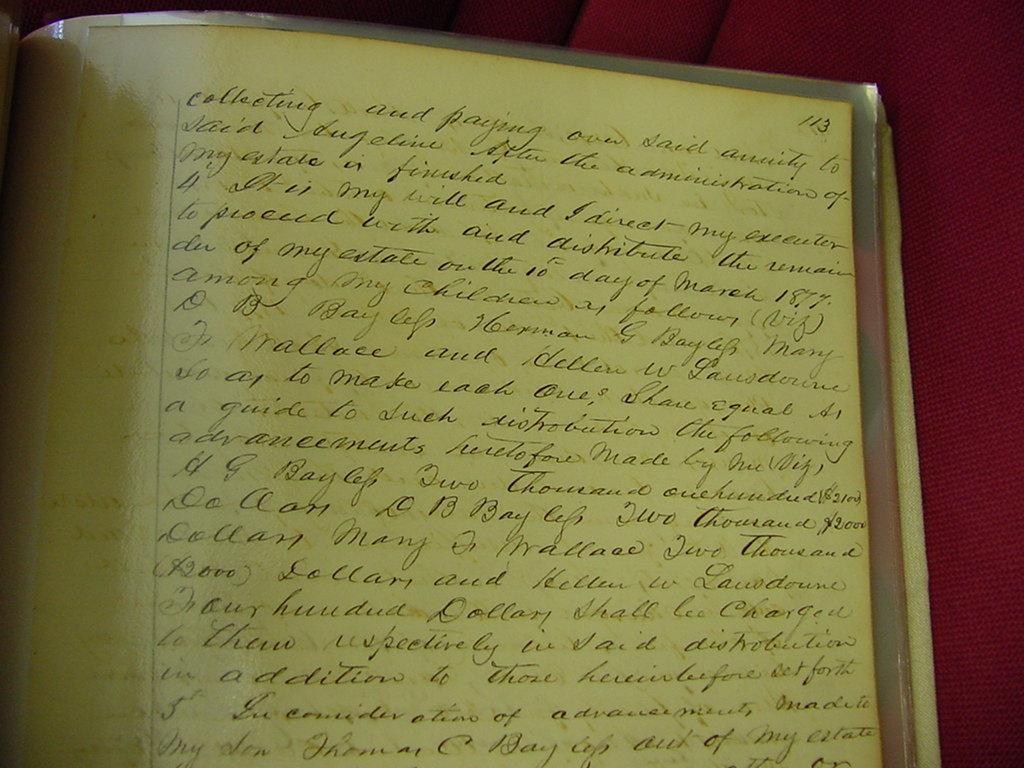 113
collecting and paying over said annuity to
said Angeline After the administration of
my estate is finished
4th It is my will and I direct my executor
to proceed with and distribute the remain
der of my estate on the 10th day of March 1877
among my children as follows (viz)
D B Bayless Herman G Bayless Mary
T Wallace and Hellen W Lansdowne
so as to make each one's share equal As
a guide to such distribution the following
advancements heretofore made by me viz,
H G Bayless Two thousand one hundred $2100
Dollars D B Bayless Two thousand $2000
Dollars Mary T Wallace Two thousand
($2000) Dollars and Hellen W Lansdowne
Four hundred Dollars shall be charged
to them respectively in said distribution
in addition to those hereinbefore set forth
5th In consideration of advancements made to
my son Thomas C Bayless out of my estate